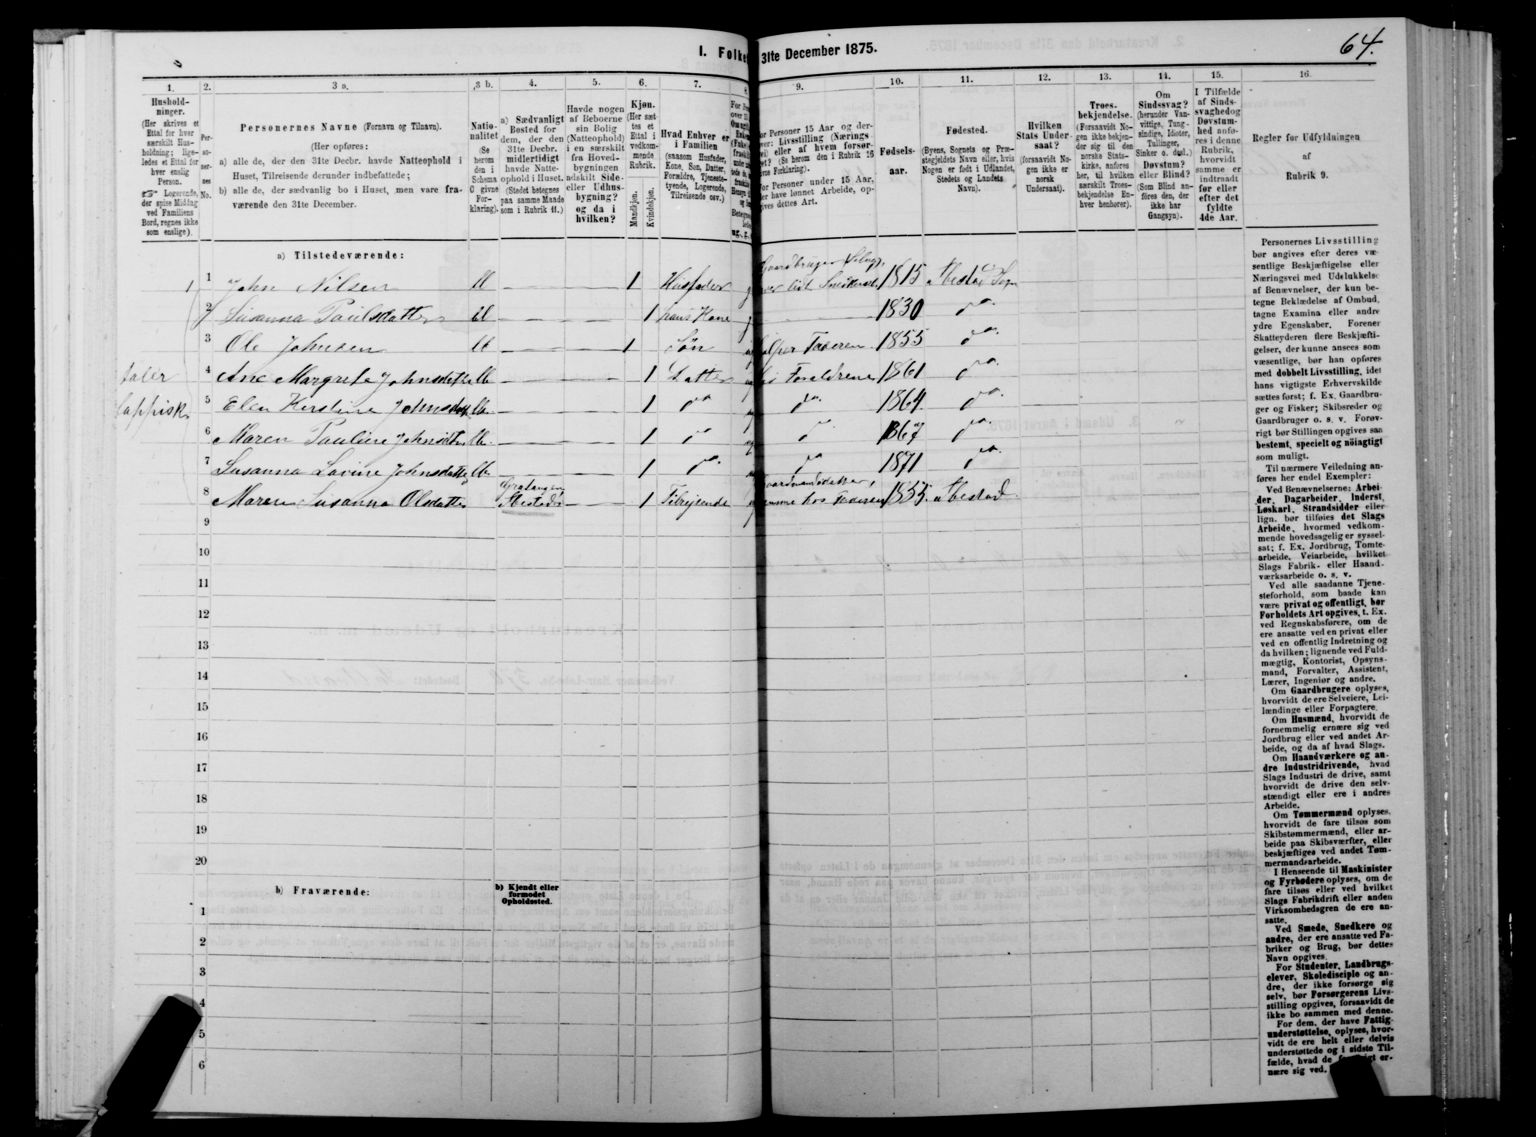 64.
I. Folke
31te December 1875.
1.
Hushold-
ninger.
(Her skrives et
Ettal for hver
særskilt Hus-
holdning; lige-
ledes et Ettal for
hver enslig
Person.
Logerende,
der spise Middag
ved Familiens
Bord, regnes ikke
som enslige).
2.
Per-
so-
ner-
nes
No.
3 a.
Personernes Navne (Fornavn og Tilnavn).
(Her opføres:
a) alle de, der den 31te Decbr. havde Natteophold i
Huset, Tilreisende derunder indbefattede;
b) alle de, der sædvanlig bo i Huset, men vare fra-
værende den 31te December.
3 b.
Natio-
nalitet
(Se
herom
den i
Schema
O givne
For-
klaring).
4.
a) Sædvanligt
Bosted for
dem, der den
31te Decbr.
midlertidigt
havde Natte-
ophold i Huset.
(Stedet betegnes
paa samme Maade
som i Rubrik 11.)
5.
Havde nogen
af Beboerne
sin Bolig
(Natteophold)
i en særskilt
fra Hoved-
bygningen
adskilt Side-
eller Udhus-
bygning?
og da i
hvilken?
6.
Kjøn.
(Her sæt-
tes et
Ettal i
vedkom-
mende
Rubrik.
Mandkjøn.
Kvindekjøn.
7.
Hvad Enhver er
i Familien
(saasom Husfader,
Kone, Søn, Datter,
Forældre, Tjeneste-
tyende, Logerende,
Tilreisende osv.)
8.
9.
10.
Fødsels-
aar.
11.
Fødested.
(Byens, Sognets og Præ-
stegjeldets Navn eller, hvis
Nogen er født i Udlandet,
Stedets og Landets
Navn).
12.
Hvilken
Stats Under-
saat?
(forsaavidt No-
gen ikke er
norsk
Undersaat).
13.
Troes-
bekjendelse.
(Forsaavidt No-
gen ikke bekjen-
der sig til den
norske Stats-
kirke, anføres
her, til hvilken
særskilt Troes-
bekjendelse En-
hver henhører).
14.
Om
Sindssvag?
(herunder Van-
vittige, Tung-
sindige, Idioter,
Tullinger,
Sinker o. desl.)
Døvstum?
eller Blind?
(Som Blind an-
føres den, der
ikke har
Gangsyn).
15.
I Tilfælde
af Sinds-
svaghed og
Døvstum-
hed anfø-
res i denne
Rubrik,
hvorvidt
samme er
indtraadt
før eller
efter det
fyldte
4de Aar.
16.
Regler for Udfyldningen
af
Rubrik 9.
a) Tilstedeværende:
1 1 John Nilsen 1 Husfader 1815 Ibestad Sogn
2 Susanna Paulsdatter 1 hans Kone 1830 do
3 Ole Johnsen 1 Søn hjelper Faderen 1855 do
4 Ane Margrete Johnsdatter 1 Datter Forældrene 1861 do
5 Elen Kirstine Johnsdatter 1 do do 1864 do
6 Maren Pauline Johnsdatter 1 do do 1867 do
7 Susanna Lavine Johnsdatter 1 do do 1871 do
8 Maren Susanna Olsdatter Ibestad 1 Tilrejsende 1855 Ibestad
taler
lappisk
9
10
11
12
13
14
15
16
17
18
19
20
b) Fraværende:
b) Kjendt eller
formodet
Opholdssted.
1
2
3
4
5
6
Personernes Livsstilling
bør angives efter deres væ-
sentlige Beskjæftigelse eller
Næringsvei med Udelukkelse
af Benævnelser, der kun be-
tegne Beklædelse af Ombud,
tagne Examina eller andre
ydre Egenskaber. Forener
Skatteyderen flere Beskjæfti-
gelser, der kunne ansees som
væsentlige, bør han opføres
med dobbelt Livsstilling, idet
hans vigtigste Erhvervskilde
sættes først; f. Ex. Gaardbru-
ger og Fisker; Skibsreder og
Gaardbruger o. s. v. Forøv-
rigt bør Stillingen opgives saa
bestemt, specielt og nøiagtigt
som muligt.
Til nærmere Veiledning an-
føres her endel Exempler:
Ved Benævnelserne: Arbei-
der, Dagarbeider, Inderst,
Løskarl, Strandsidder eller
lign. bør tilføies det Slags
Arbeide, hvormed vedkom-
mende hovedsagelig er syssel-
sat; f. Ex. Jordbrug, Tomte-
arbeide, Veiarbeide, hvilket
Slags Fabrik- eller Haand-
værksarbeide o. s. v.
Ved alle saadanne Tjene-
steforhold, som baade kan
være privat og offentligt, bør
Forholdets Art opgives, t. Ex.
ved Regnskabsførere, om de
ere ansatte ved en privat eller
ved en offentlig Indretning og
da hvilken; lignende ved Fuld-
mægtig, Kontorist, Opsyns-
mand, Forvalter, Assistent,
Lærer, Ingeniør og andre.
Om Gaardbrugere oplyses,
hvorvidt de ere Selveiere, Lei-
lændinge eller Forpagtere.
Om Husmænd, hvorvidt de
fornemmelig ernære sig ved
Jordbrug eller ved andet Ar-
beide, og da af hvad Slags.
Om Haandværkere og an-
dre Industridrivende, hvad
Slags Industri de drive, samt
hvorvidt de drive den selv-
stændigt eller ere i andres
Arbeide.
Om Tømmermænd oplyses,
hvorvidt de fare tilsøs som
Skibstømmermænd, eller ar-
beide paa Skibsværfter, eller
beskjæftiges ved andet Tøm-
mermandsarbeide.
I Henseende til Maskinister
og Fyrbødere oplyses, om de
fare tilsøs eller ved hvilket
Slags Fabrikdrift eller anden
Virksomhedsgren de ere an-
satte.
Ved Smede, Snedkere og
andre, der ere ansatte ved Fa-
briker og Brug, bør dettes
Navn opgives.
For Studenter, Landbrugs-
elever, Skoledisciple og an-
dre, der ikke forsørge sig
selv, bør Forsørgerens Livs-
stilling opgives, forsaavidt de
ikke bo sammen med denne.
For dem, der have Fattig-
understøttelse, oplyses, hvor-
vidt de ere helt eller delvis
understøttede og i sidste Til-
fælde, hvad de er-
nære sig ved.